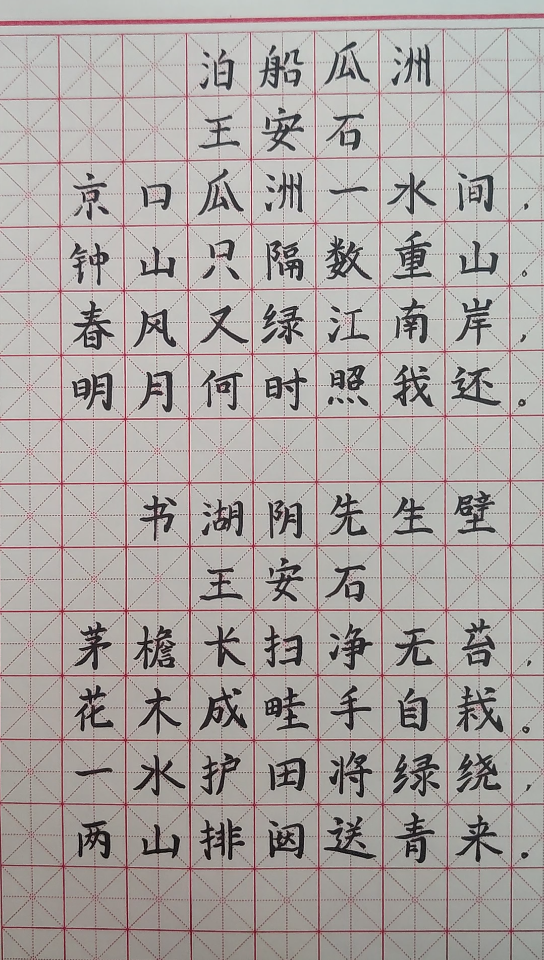 泊船瓜洲
王安石
京口瓜洲一水间，
钟山只隔数重山。
春风又绿江南岸，
明月何时照我还。
书湖阴先生壁
王安石
茅檐长扫净无苔，
花木成畦手自栽。
一水护田将绿绕，
两山排闼送青来。